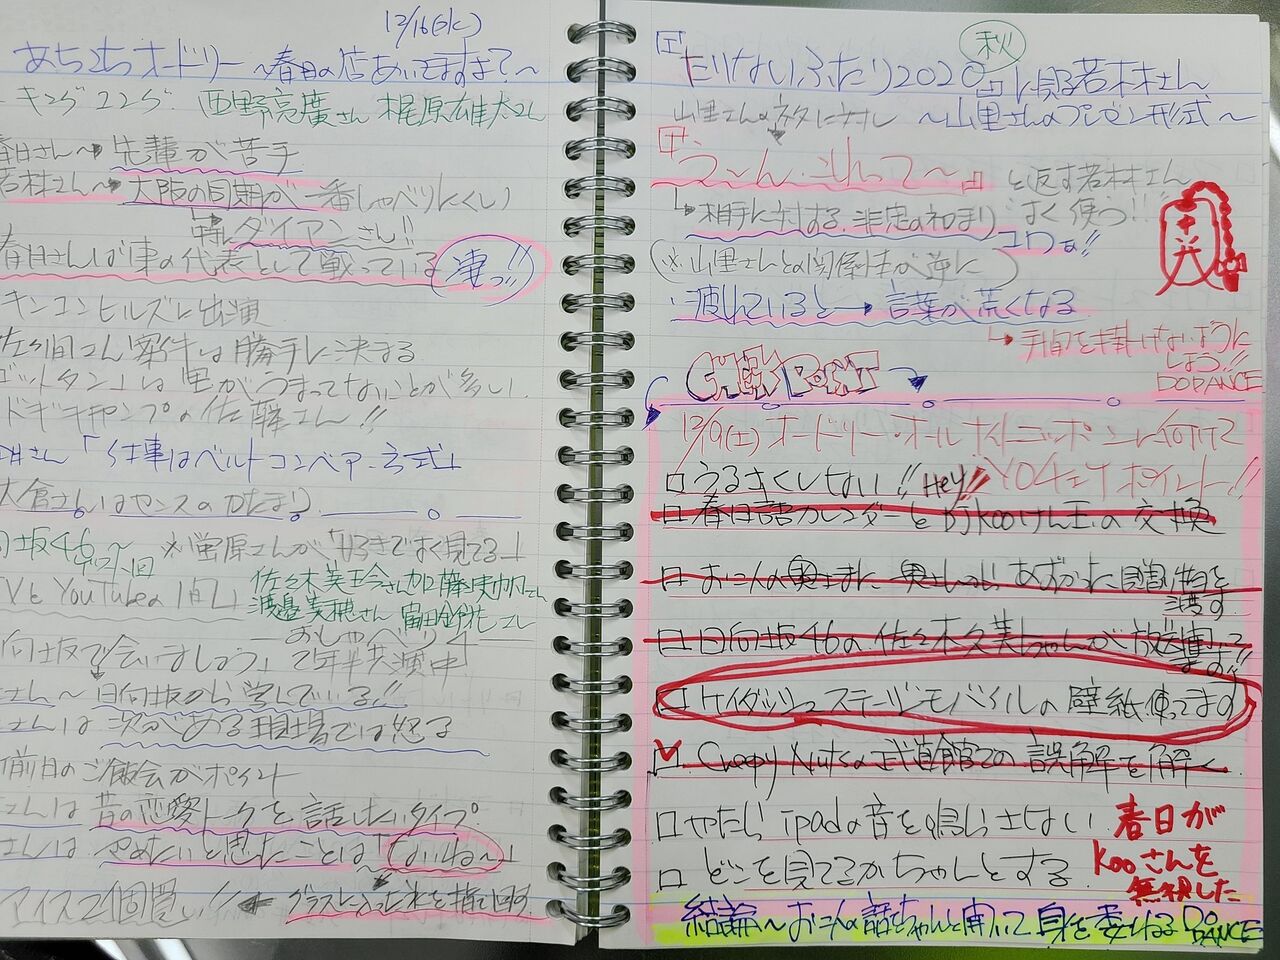 12/16(水)
あちこちオードリー ～春日の店あいてますよ?～
キングコング 西野亮廣さん 梶原雄太さん
春日さん～→先輩が苦手
若林さん～→大阪の同期が一番しゃべりにくい
特にダイアンさん!!
春日さんが車の代表として戦っている 凄っ!!
キンコンヒルズに出演
佐々間さん案件は勝手に決まる
ゴットタン」は 里がうまってないことが多い
ドギキャンプの佐藤さん!!
「仕事はベルトコンベアー方式」
大倉さんはセンスのかたまり
向坂46～ ※蛍原さんが「好きですごく見てる」
TVとYouTubeの1回し 佐々木美玲さん 加藤史帆さん
渡邉美穂さん 富田鈴花さん
おしゃべり
向坂で会いましょう」2年半共演中
さん～日向坂から学んでいる!!
さんは 次がある現場では怒る
前日のご飯会がポイント
さんは 昔の恋愛トークを話したいタイプ
さんは やめたいと思ったことは「ないね～」
アイス2個買い!! ← グラスに入った氷を指で回す
秋
『たりないふたり2020』に見る若林さん
山里さんのネタに対し ～山里さんのプレゼン形式～
『う～ん、それって～』と返す若林さん
相手に対する非定の初まり すごく使う!!
コワぁ!!
(※山里さんとの関係性が逆に)
・疲れていると→言葉が荒くなる
手間を掛けないように
しよう!!
DO DANCE
CHECK POINT
12/19(土)オードリー・オールナイトニッポンに向けて
□うるさくしない!! Hey!! YO4チェケポイント!!
□春日語カレンダーとDJ Kooけん玉の交換
□お二人の奥さまに奥さんからあずかった贈り物を
渡す
□日向坂46の佐々木久美ちゃんが放送聴いて
ます!!
□ケイダッシュステージモバイルの壁紙使ってます
☑Creepy Nutsの武道館での誤解を解く
□やたらipadの音を鳴らさない
春日が
Kooさんを
無視した
□どこを見てるかちゃんとする
結論～お二人の話をちゃんと聞いて身を委ねる DO
DANCE